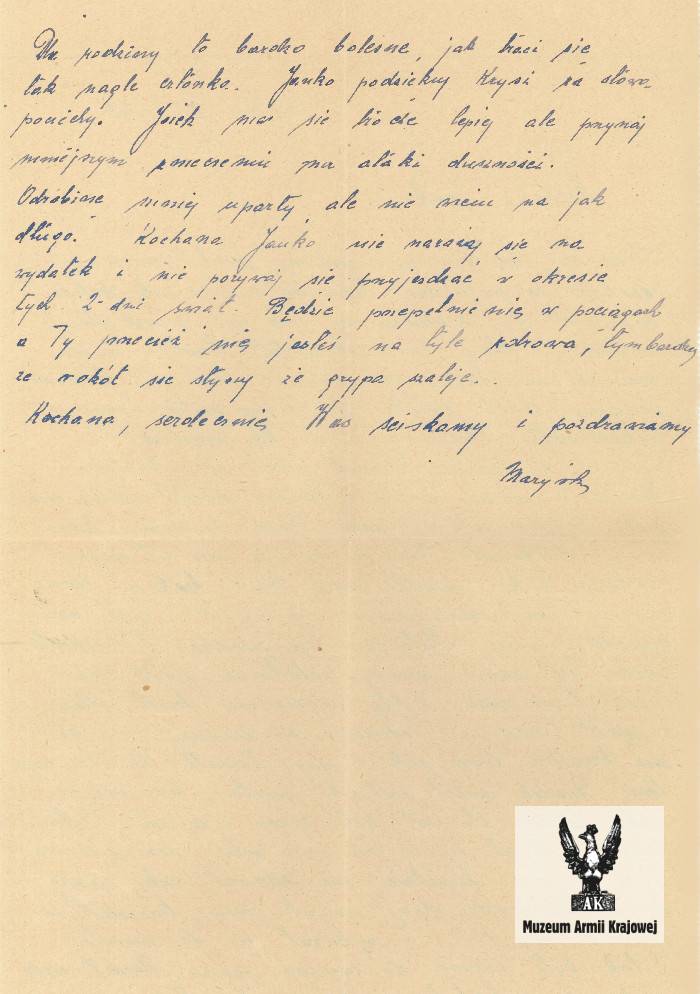 Dla rodziny to bardzo bolesne, jak traci się
tak nagle członka. Janko podziękuj Krysi za słowa
pociechy. Józek ma się trochę lepiej ale przynaj
mniejszym zmęczeniu ma ataki duszności.
Odrobinę mniej uparty, ale nie wiem na jak
długo. Kochana Janko nie narażaj się na
wydatek i nie porywaj się przyjeżdżać w okresie
tych 2-dni świąt. Będzie przepełnienie w pociągach
a Ty przecież nie jesteś na tyle zdrowa, tymbardziej
że wokół się słyszy że grypa szaleje..
Kochana, serdecznie Was ściskamy i pozdrawiamy
AK
Muzeum Armii Krajowej